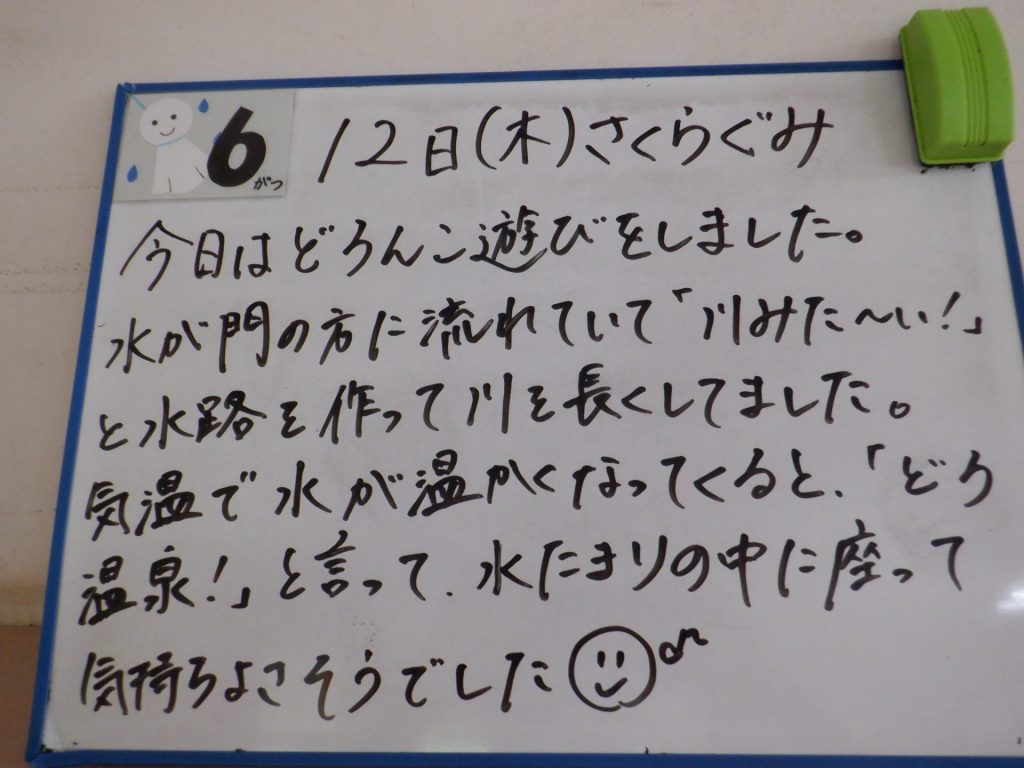 6がつ 12日(木)さくらぐみ
今日はどろんこ遊びをしました。
水が門の方に流れていて「川みた〜い!」
と水路を作って川を長くしてました。
気温で水が温かくなってくると、「どろ
温泉!」と言って、水たまりの中に座って
気持ちよさそうでした